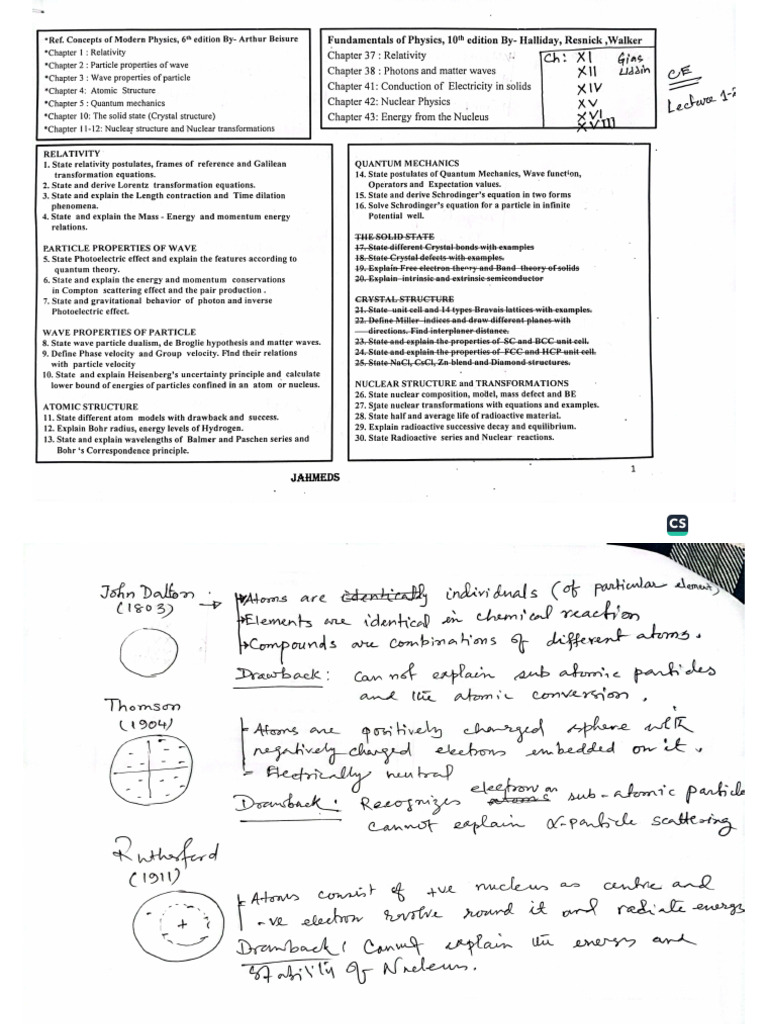 *Ref. Concepts of Modern Physics, 6th edition By- Arthur Beisure
*Chapter 1 : Relativity
*Chapter 2 : Particle properties of wave
*Chapter 3 : Wave properties of particle
*Chapter 4: Atomic Structure
*Chapter 5 : Quantum mechanics
*Chapter 10: The solid state (Crystal structure)
*Chapter 11-12: Nuclear structure and Nuclear transformations
Fundamentals of Physics, 10th edition By- Halliday, Resnick ,Walker
Chapter 37 : Relativity
Chapter 38 : Photons and matter waves
Chapter 41: Conduction of Electricity in solids
Chapter 42: Nuclear Physics
Chapter 43: Energy from the Nucleus
Ch: XI Gias
XII Uddin
XIV
XV
XVI
XVIII
CE
Lecture 1-2
RELATIVITY
1. State relativity postulates, frames of reference and Galilean
transformation equations.
2. State and derive Lorentz transformation equations.
3. State and explain the Length contraction and Time dilation
phenomena.
4. State and explain the Mass - Energy and momentum energy
relations.
PARTICLE PROPERTIES OF WAVE
5. State Photoelectric effect and explain the features according to
quantum theory.
6. State and explain the energy and momentum conservations
in Compton scattering effect and the pair production .
7. State and gravitational behavior of photon and inverse
Photoelectric effect.
WAVE PROPERTIES OF PARTICLE
8. State wave particle dualism, de Broglie hypothesis and matter waves.
9. Define Phase velocity and Group velocity. FInd their relations
with particle velocity
10. State and explain Heisenberg's uncertainty principle and calculate
lower bound of energies of particles confined in an atom or nucleus.
ATOMIC STRUCTURE
11. State different atom models with drawback and success.
12. Explain Bohr radius, energy levels of Hydrogen.
13. State and explain wavelengths of Balmer and Paschen series and
Bohr 's Correspondence principle.
QUANTUM MECHANICS
14. State postulates of Quantum Mechanics, Wave function,
Operators and Expectation values.
15. State and derive Schrodinger's equation in two forms
16. Solve Schrodinger's equation for a particle in infinite
Potential well.
THE SOLID STATE
17. State different Crystal bonds with examples
18. State Crystal defects with examples.
19. Explain Free electron theory and Band theory of solids
20. Explain intrinsic and extrinsic semiconductor
CRYSTAL STRUCTURE
21. State unit cell and 14 types Bravais lattices with examples.
22. Define Miller indices and draw different planes with
directions. Find interplaner distance.
23. State and explain the properties of SC and BCC unit cell.
24. State and explain the properties of FCC and HCP unit cell.
25. State NaCl, CsCl, Zn blend and Diamond structures.
NUCLEAR STRUCTURE and TRANSFORMATIONS
26. State nuclear composition, model, mass defect and BE
27. State nuclear transformations with equations and examples.
28. State half and average life of radioactive material.
29. Explain radioactive successive decay and equilibrium.
30. State Radioactive series and Nuclear reactions.
1
JAHMEDS
CS
John Dalton
(1803)
Atoms are identically individuals (of particular element)
Elements are identical in chemical reaction
Compounds are combinations of different atoms.
Drawback: Can not explain sub atomic particles
and the atomic conversion.
Thomson
(1904)
Atoms are positively charged sphere with
negatively charged electrons embedded on it.
Electrically neutral
Drawback: Recognizes atoms electron as sub-atomic particle
cannot explain α-particle scattering
Rutherford
(1911)
+
Atoms consist of +ve nucleus as centre and
-ve electron revolve round it and radiate energy
Drawback: Cannot explain the energy and
stability of Nucleus.